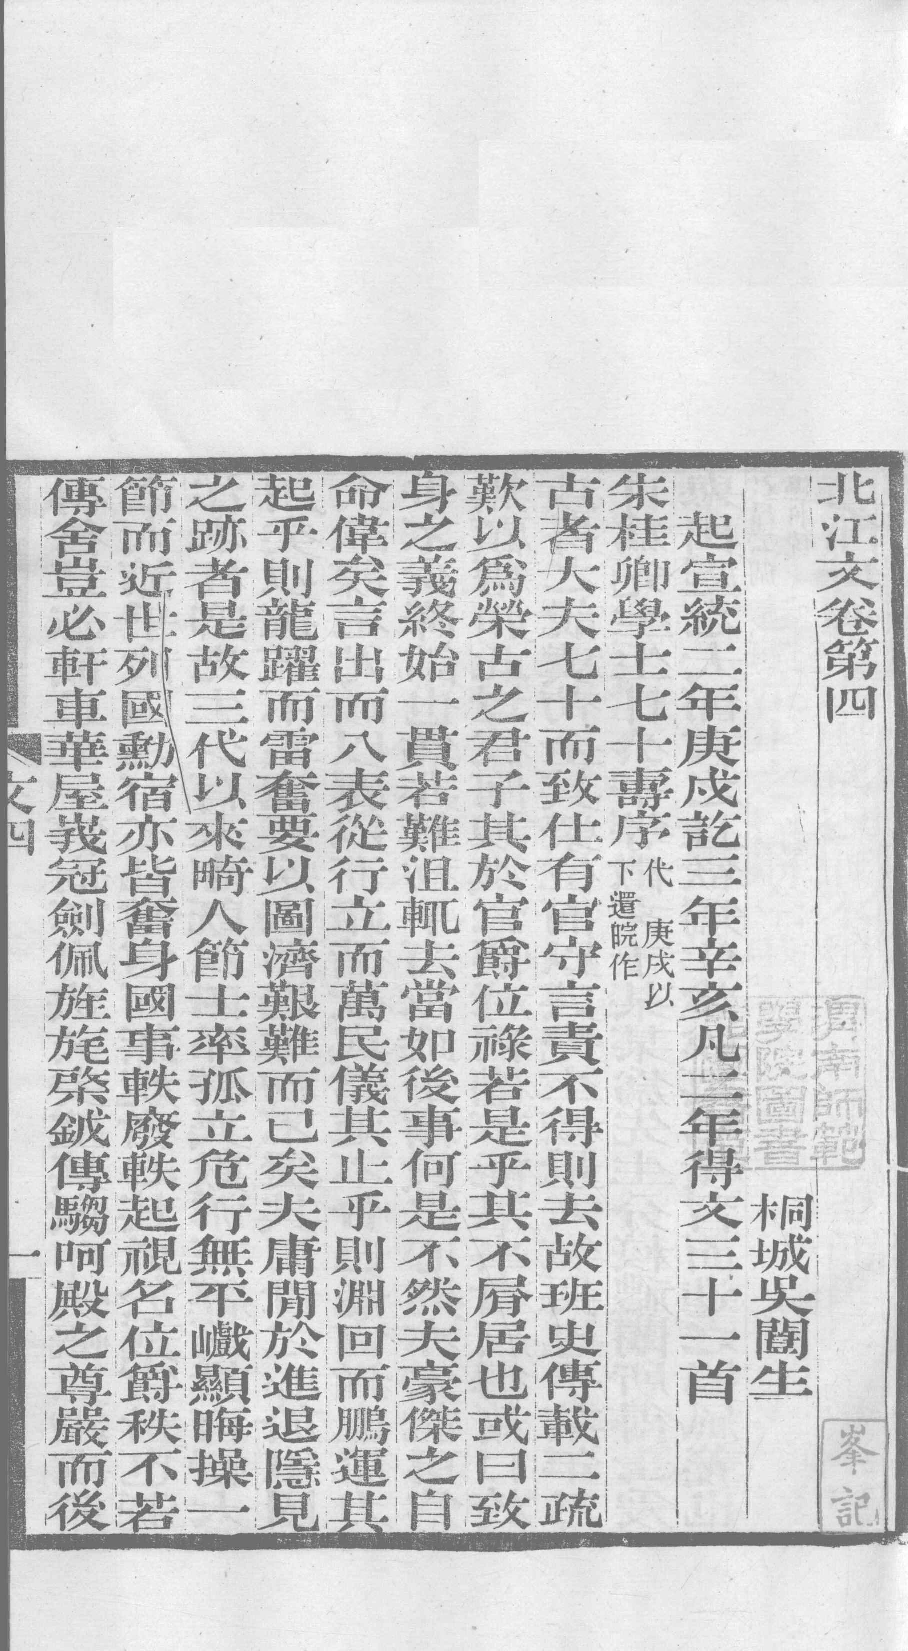 北江文卷第四
桐城吳闓生
起宣統二年庚戌訖三年辛亥凡二年得文三十一首
朱桂卿學士七十壽序代 庚戌以下還皖作
古者大夫七十而致仕有官守言責不得則去故班史傳載二疏
歎以爲榮古之君子其於官爵位祿若是乎其不屑居也或曰致
身之義終始一貫若難沮輒去當如後事何是不然夫豪傑之自
命偉矣言出而八表從行立而萬民儀其止乎則淵回而鵬運其
起乎則龍躍而雷奮要以圖濟艱難而已矣夫庸閒於進退隱見
之跡者是故三代以來畸人節士率孤立危行無平巇顯晦操一
節而近世列國勳宿亦皆奮身國事軼廢軼起視名位爵秩不若
傳舍豈必軒車華屋峩冠劍佩旌旄棨鉞傳騶呵殿之尊嚴而後
文四
一
渭南師範學院圖書
峯記